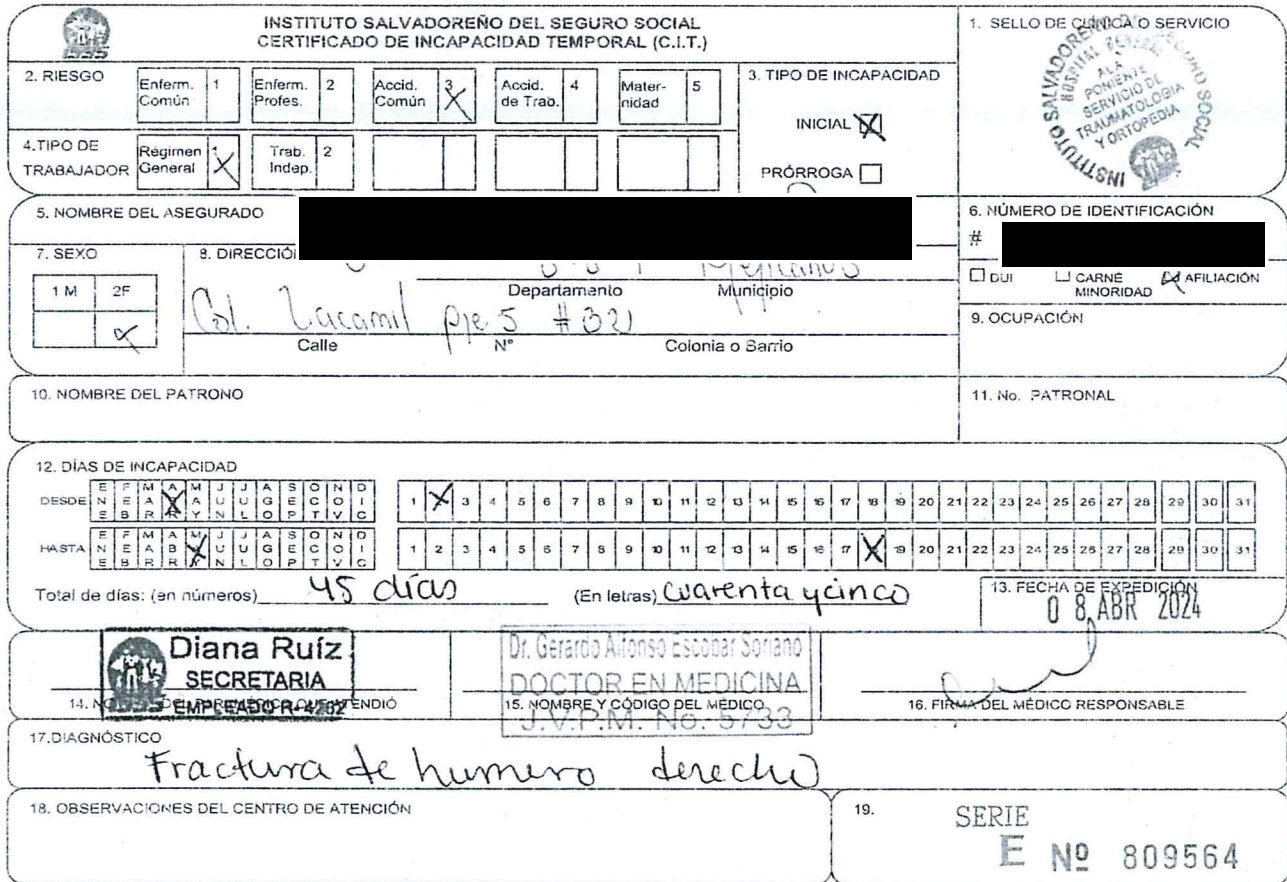 INSTITUTO SALVADOREÑO DEL SEGURO SOCIAL
CERTIFICADO DE INCAPACIDAD TEMPORAL (C.I.T.)
1. SELLO DE CLÍNICA O SERVICIO
INSTITUTO SALVADOREÑO DEL SEGURO SOCIAL
HOSPITAL GENERAL
ALA
PONIENTE
SERVICIO DE
TRAUMATOLOGIA
Y ORTOPEDIA
ISSS
2. RIESGO
Enferm. Común 1
Enferm. Profes. 2
Accid. Común 3 X
Accid. de Trab. 4
Mater-nidad 5
3. TIPO DE INCAPACIDAD
INICIAL X
PRÓRROGA
4.TIPO DE TRABAJADOR
Régimen General 1 X
Trab. Indep. 2
5. NOMBRE DEL ASEGURADO
6. NÚMERO DE IDENTIFICACIÓN
#
DUI CARNÉ MINORIDAD X AFILIACIÓN
7. SEXO
1 M 2F
X
8. DIRECCIÓN
Mejicanos
Departamento Municipio
Col. Zacamil pje 5 #321
Calle N° Colonia o Barrio
9. OCUPACIÓN
10. NOMBRE DEL PATRONO
11. No. PATRONAL
12. DÍAS DE INCAPACIDAD
DESDE ENE FEB MAR X MAY JUN JUL AGO SEP OCT NOV DIC 1 X 3 4 5 6 7 8 9 10 11 12 13 14 15 16 17 18 19 20 21 22 23 24 25 26 27 28 29 30 31
HASTA ENE FEB MAR ABR X JUN JUL AGO SEP OCT NOV DIC 1 2 3 4 5 6 7 8 9 10 11 12 13 14 15 16 17 X 19 20 21 22 23 24 25 26 27 28 29 30 31
Total de días: (en números) 45 días (En letras) cuarenta y cinco
13. FECHA DE EXPEDICIÓN
08 ABR 2024
Diana Ruíz
SECRETARIA
EMPLEADO R-4262
Dr. Gerardo Alfonso Escobar Soriano
DOCTOR EN MEDICINA
J.V.P.M. No. 5733
15. NOMBRE Y CÓDIGO DEL MÉDICO
16. FIRMA DEL MÉDICO RESPONSABLE
17.DIAGNÓSTICO
Fractura de humero derecho
18. OBSERVACIONES DEL CENTRO DE ATENCIÓN
19.
SERIE
E Nº 809564